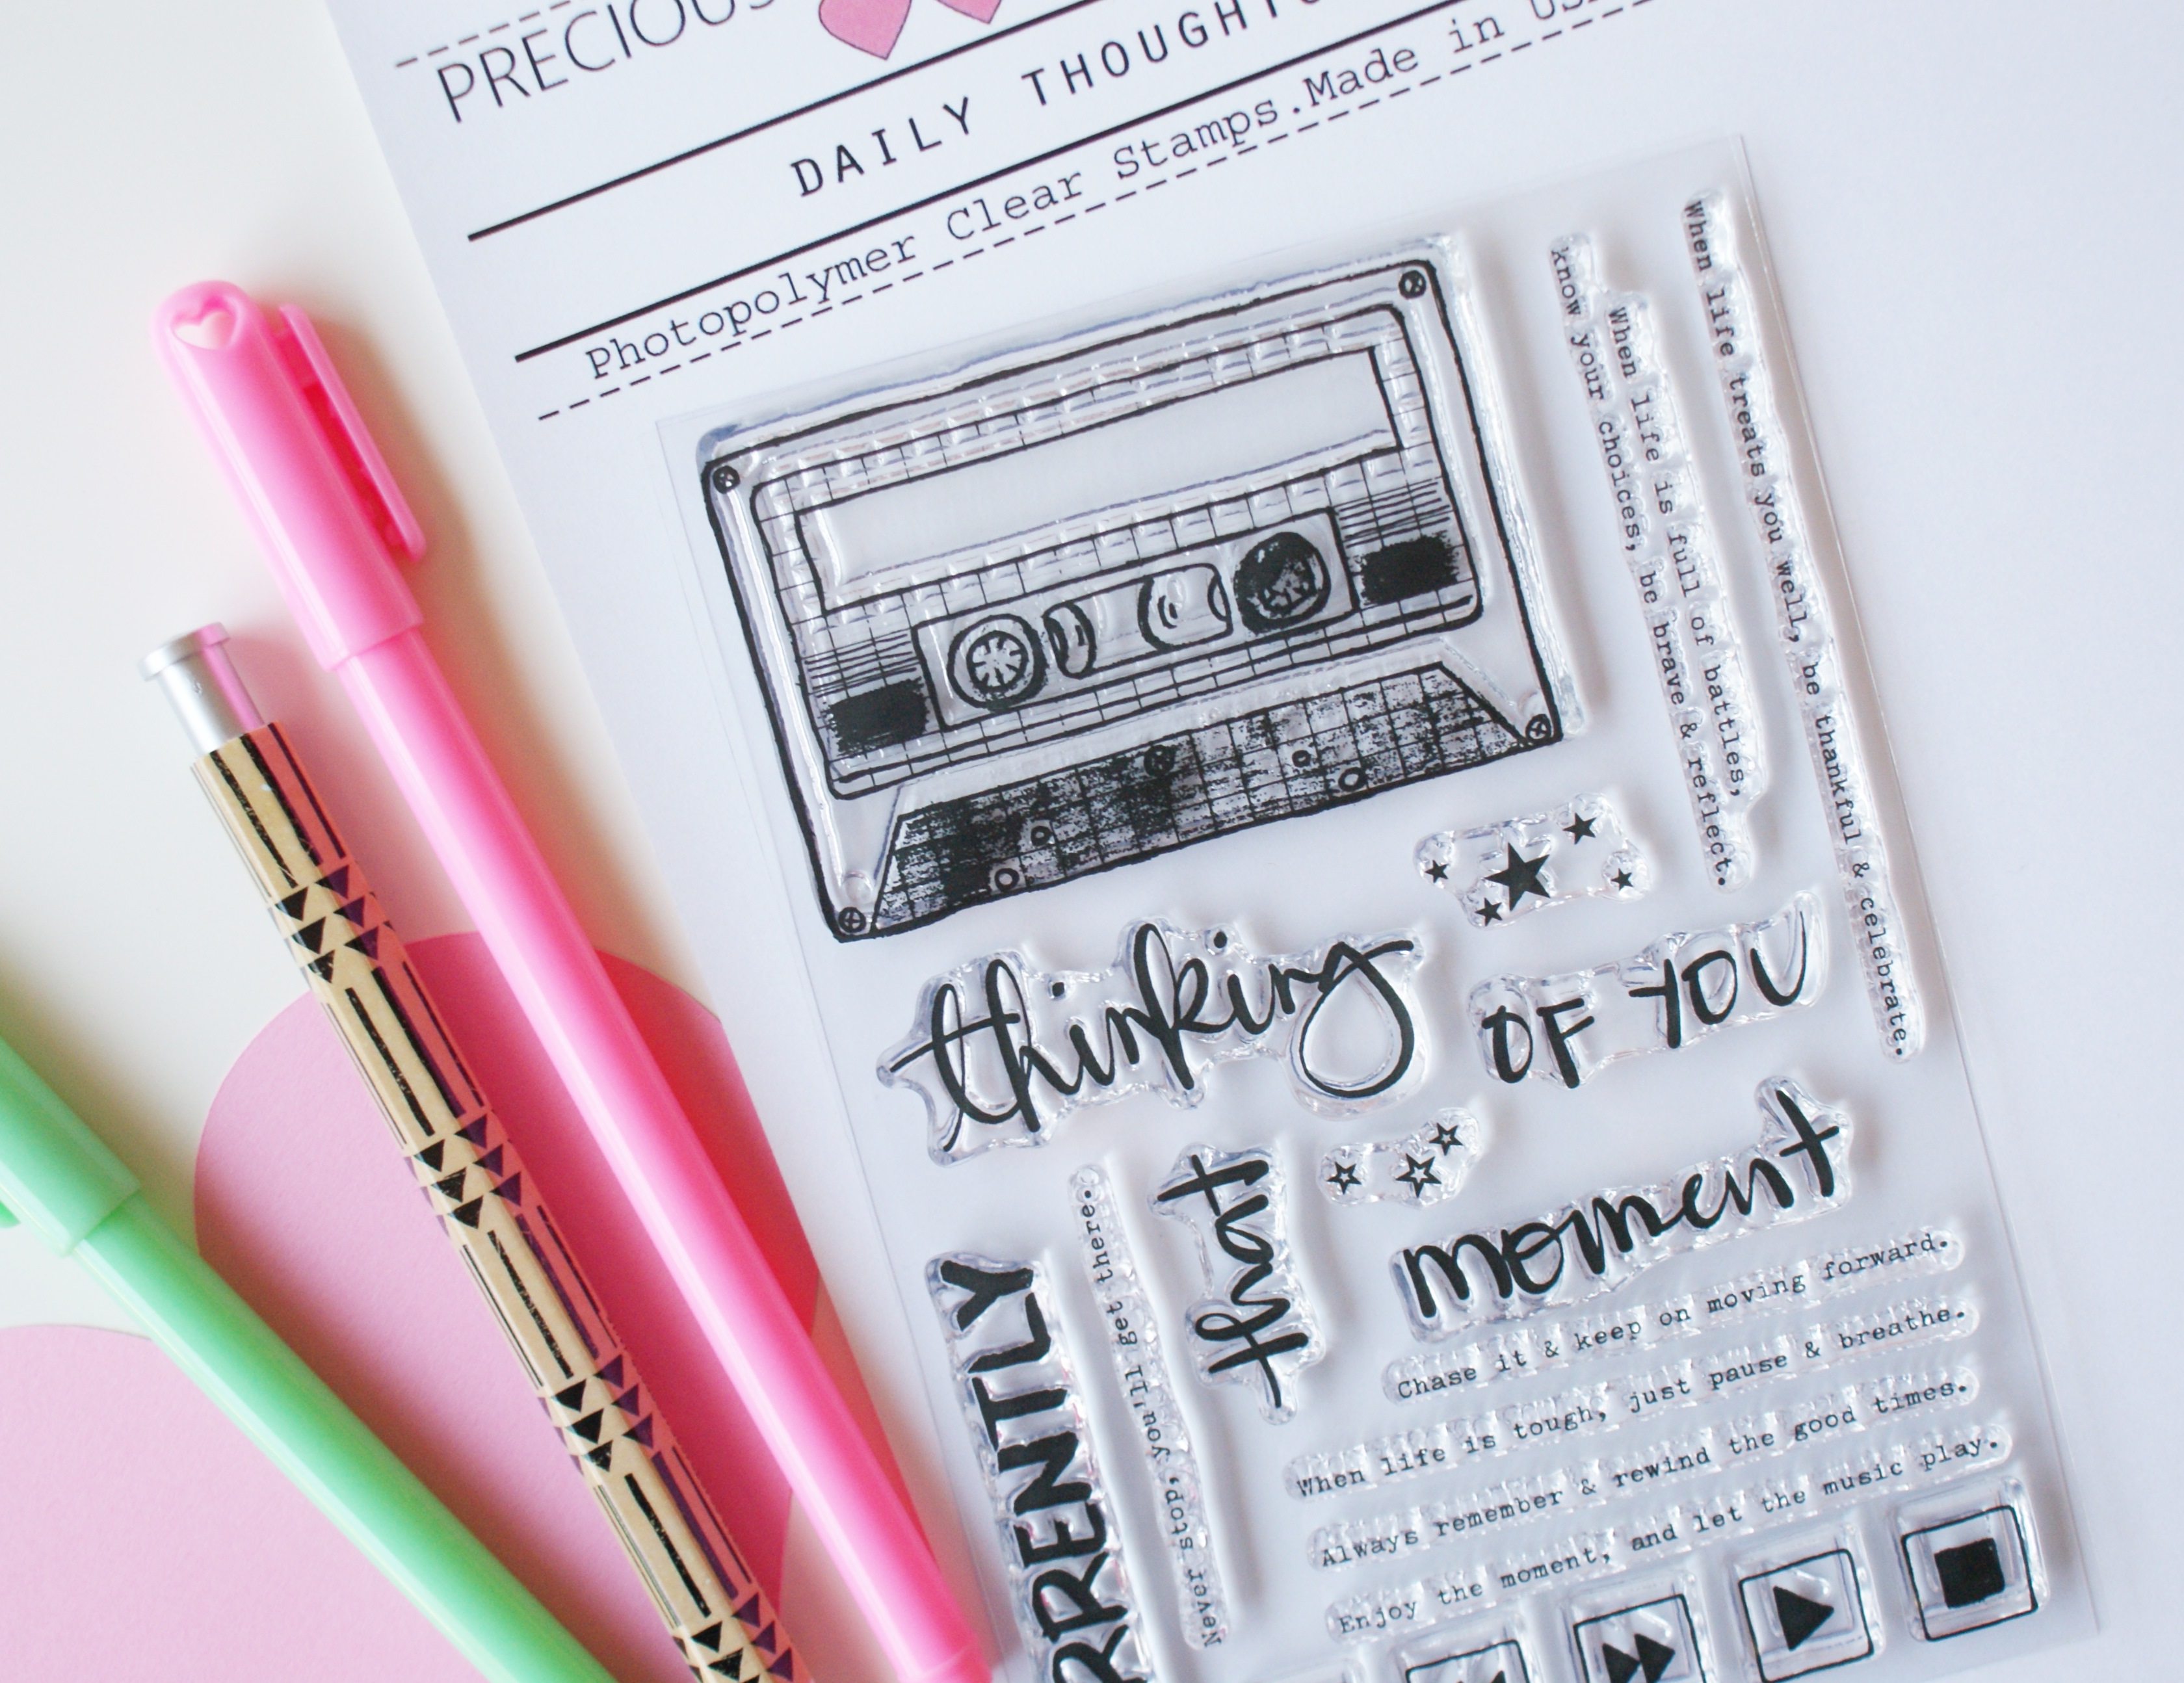 PRECIOUS
DAILY THOUGHTS
Photopolymer Clear Stamps.Made in USA
When life treats you well, be thankful & celebrate.
When life is full of battles,
know your choices, be brave & reflect.
thinking
OF YOU
that
moment
RRENTLY
Never stop, you'll get there.
Chase it & keep on moving forward.
When life is tough, just pause & breathe.
Always remember & rewind the good times.
Enjoy the moment, and let the music play.